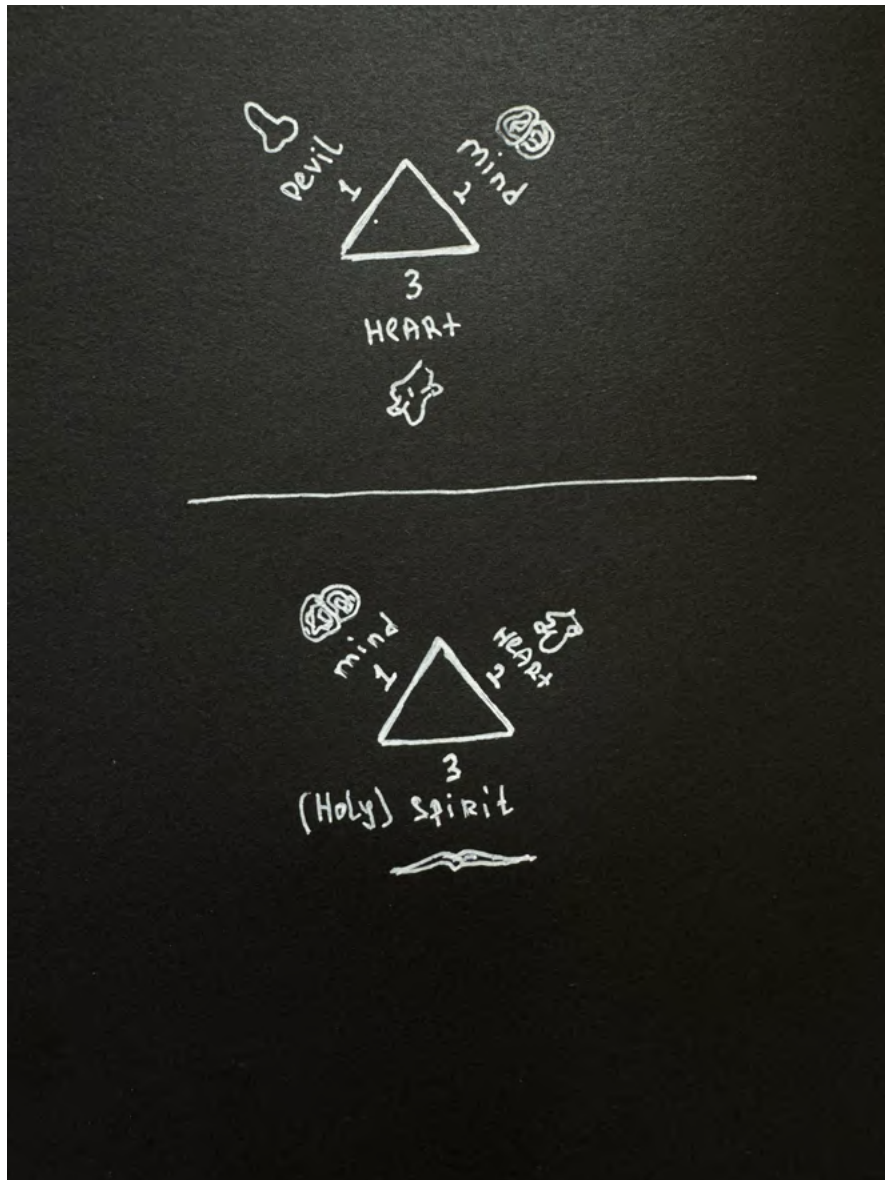 Devil
1
Mind
2
3
HeARt
mind
1
HeARt
2
3
(Holy) spiRit